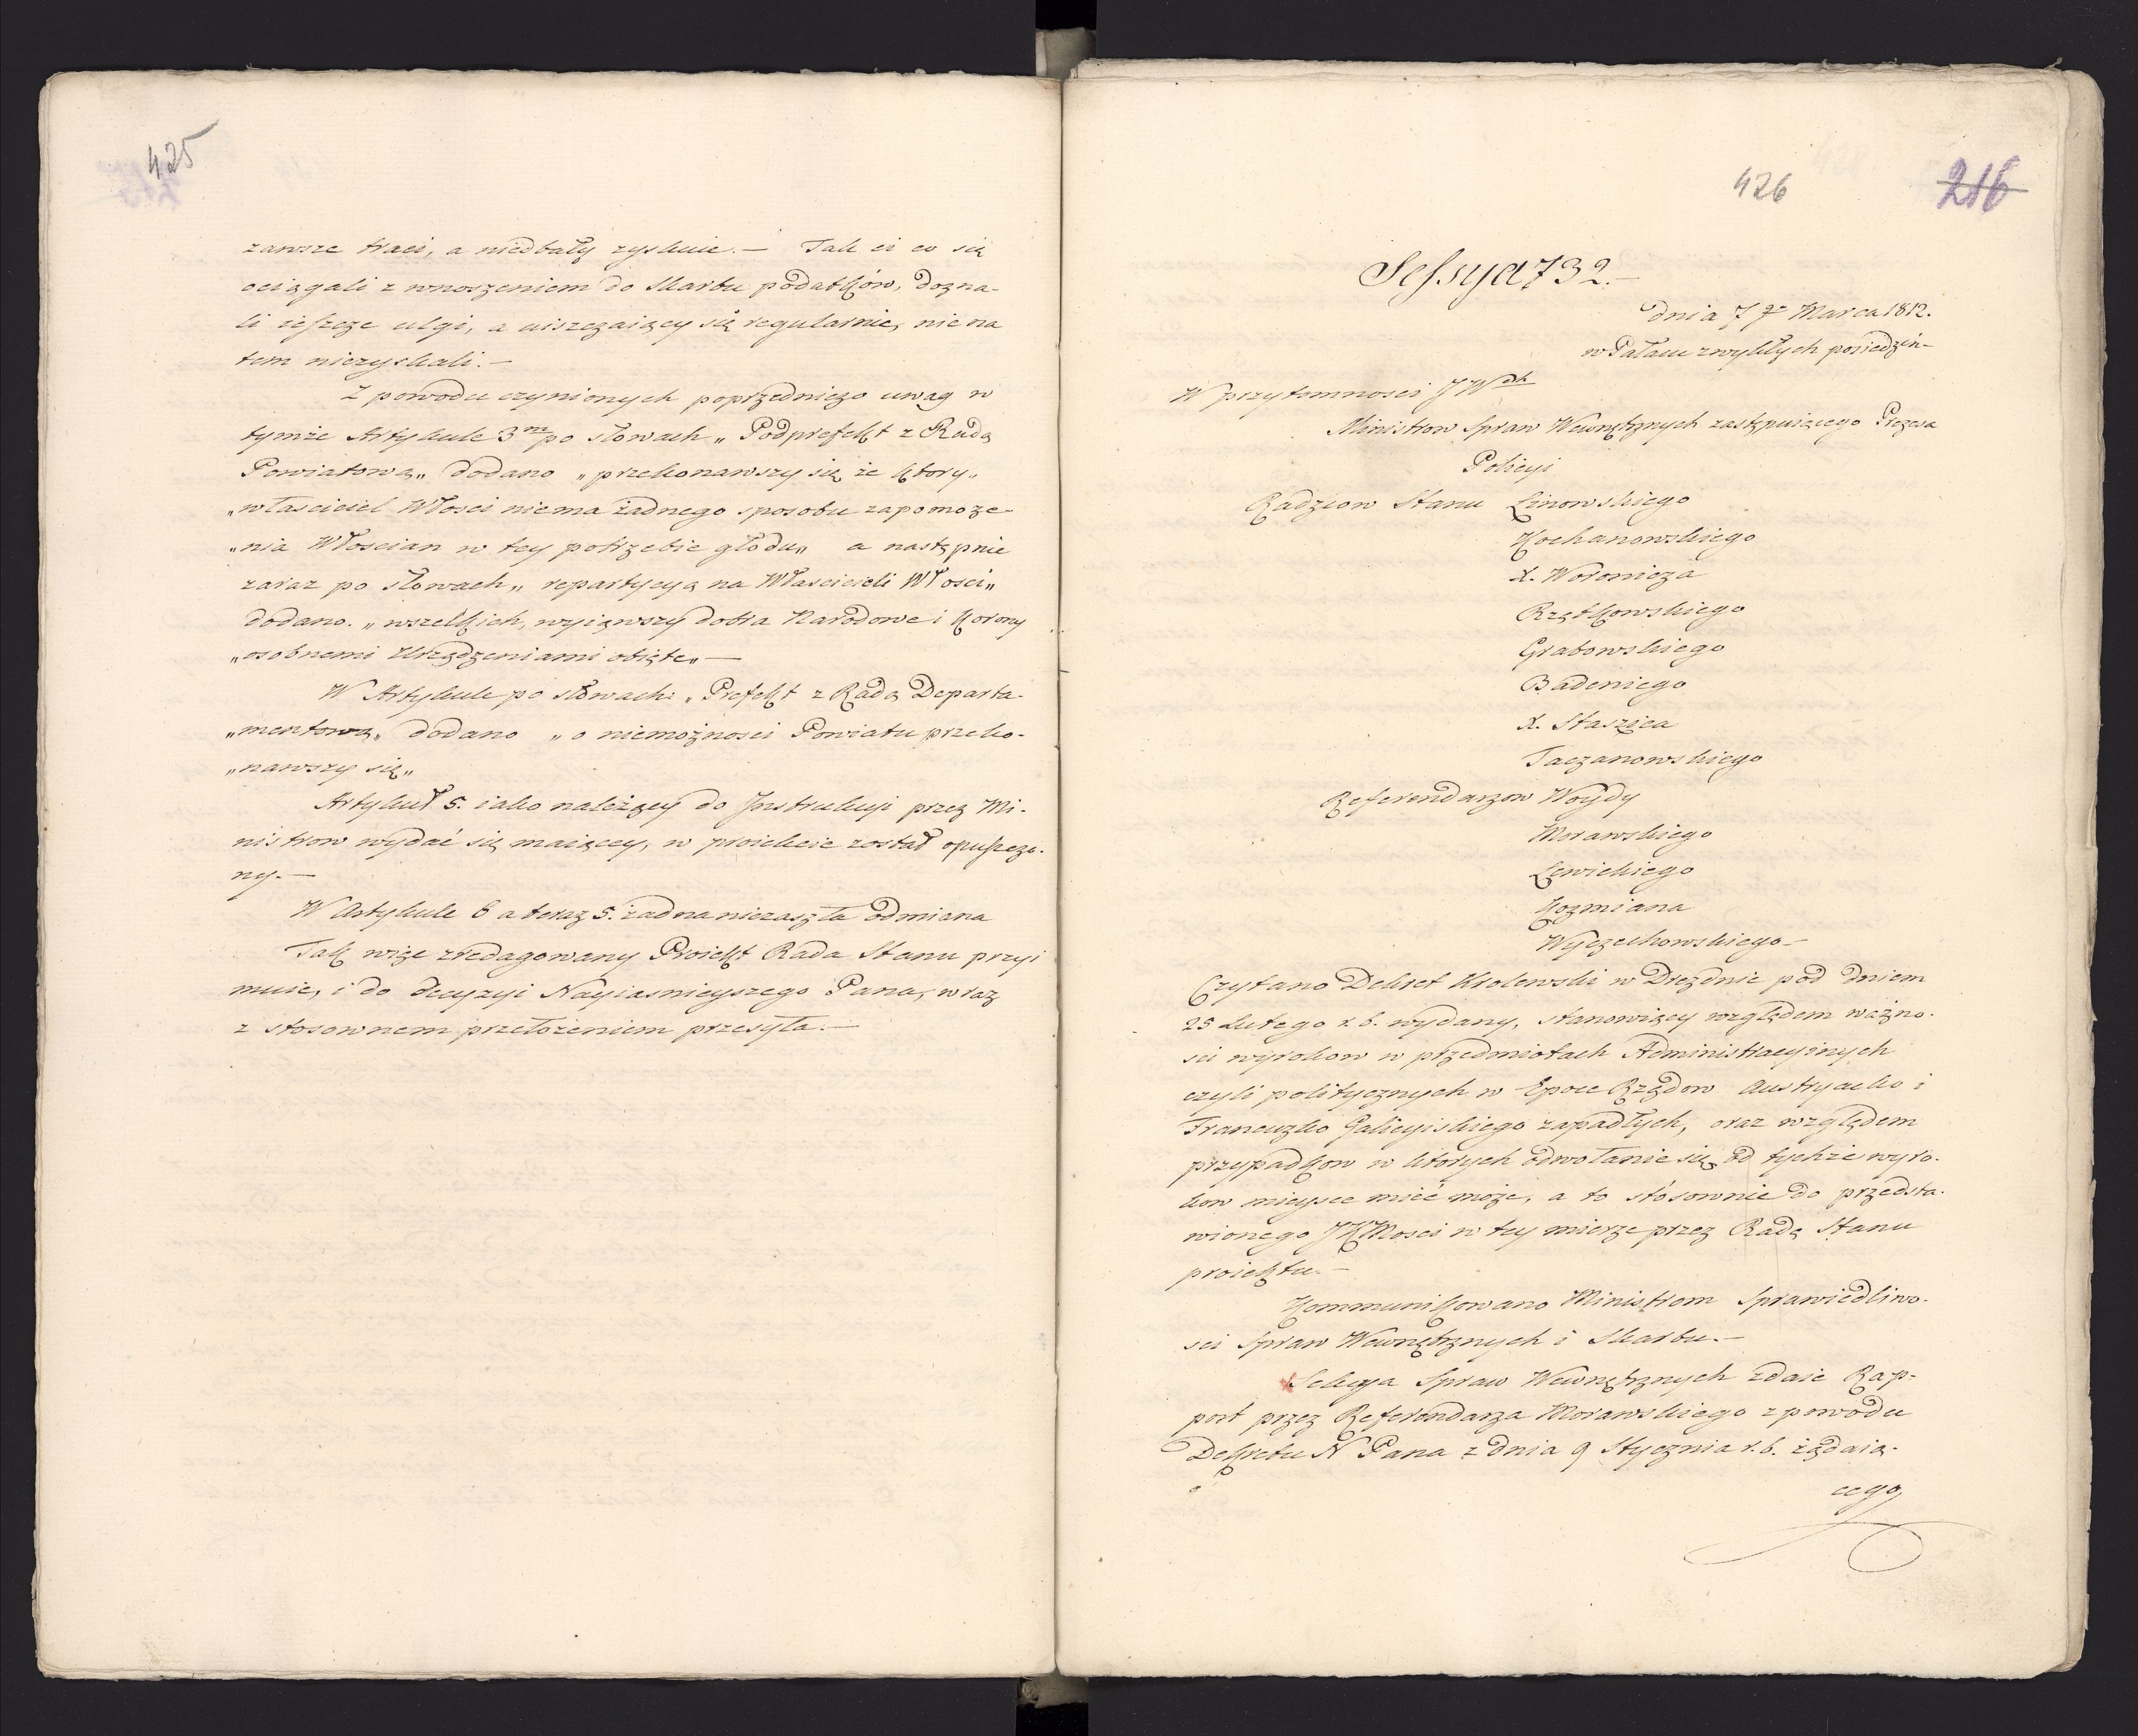 425
zawsze traci, a niedbały zyskuie. — Tak ci co się
ociągali z wnoszeniem do Skarbu podatków, dozna-
li ieszcze ulgi, a uiszczaiący się regularnie, nie na
tem niezyskali. —
Z powodu czynionych poprzedniczo uwag w
tymże Artykule 3m po słowach „Podprefekt z Radą
Powiatową„ dodano „przekonawszy się że który„
„właściciel Włości niema żadnego sposobu zapomoże-
„nia Włoscian w tey potrzebie głodu„ a następnie
zaraz po słowach „repartycyą na Właścicieli Włości„
dodano. „wszelkich, wyiąwszy dobra Narodowe i Korony
„osobnemi Urządzeniami obięte„ —
W Artykule po słowach: „Prefekt z Radą Departa-
„mentową„ dodano „o niemożnosci Powiatu przeko-
„nawszy się„
Artykuł 5. iako należący do Instrukcyi przez Mi-
nistrow wydać się maiącey, w proiekcie został opuszczo-
ny. —
W Artykule 6 a teraz 5. żadna niezaszła odmiana
Tak więc zredagowany Proiekt Rada Stanu przyi
muie, i do decyzyi Nayiasnieyszego Pana, wraz
z stosownem przełożeniem przesyła. —
426
216
Sessya 732. —
dnia 7go Marca 1812.
w Pałacu zwykłych posiedzeń —
W przytomnosci JWch
Ministrow Spraw Wewnętrznych zastępuiącego Prezesa
Policyi
Radzcow Stanu Linowskiego
Kochanowskiego
X. Woronicza
Rzętkowskiego
Grabowskiego
Badeniego
X. Staszica
Taczanowskiego
Referendarzow Woydy
Morawskiego
Lewickiego
Kozmiana
Wyczechowskiego —
Czytano Dekret Krolewski w Dreznie pod dniem
25 Lutego r. b. wydany, stanowiący względem ważno-
sci wyrokow w przedmiotach Administracyinych
czyli politycznych w Epoce Rządow Austryacko i
Francuzko Galicyiskiego zapadłych, oraz względem
przypadkow w ktorych odwołanie się od tychże wyro-
kow mieysce mieć może, a to stósownie do przedsta-
wionego JKMosci w tey mierze przez Radę Stanu
proiektu. —
Kommunikowano Ministrom Sprawiedliwo-
sci Spraw Wewnętrznych i Skarbu. —
Sekcya Spraw Wewnętrznych zdaie Rap-
port przez Referendarza Morawskiego z powodu
Dekretu N Pana z dnia 9 Stycznia r. b. żądaią-
cego